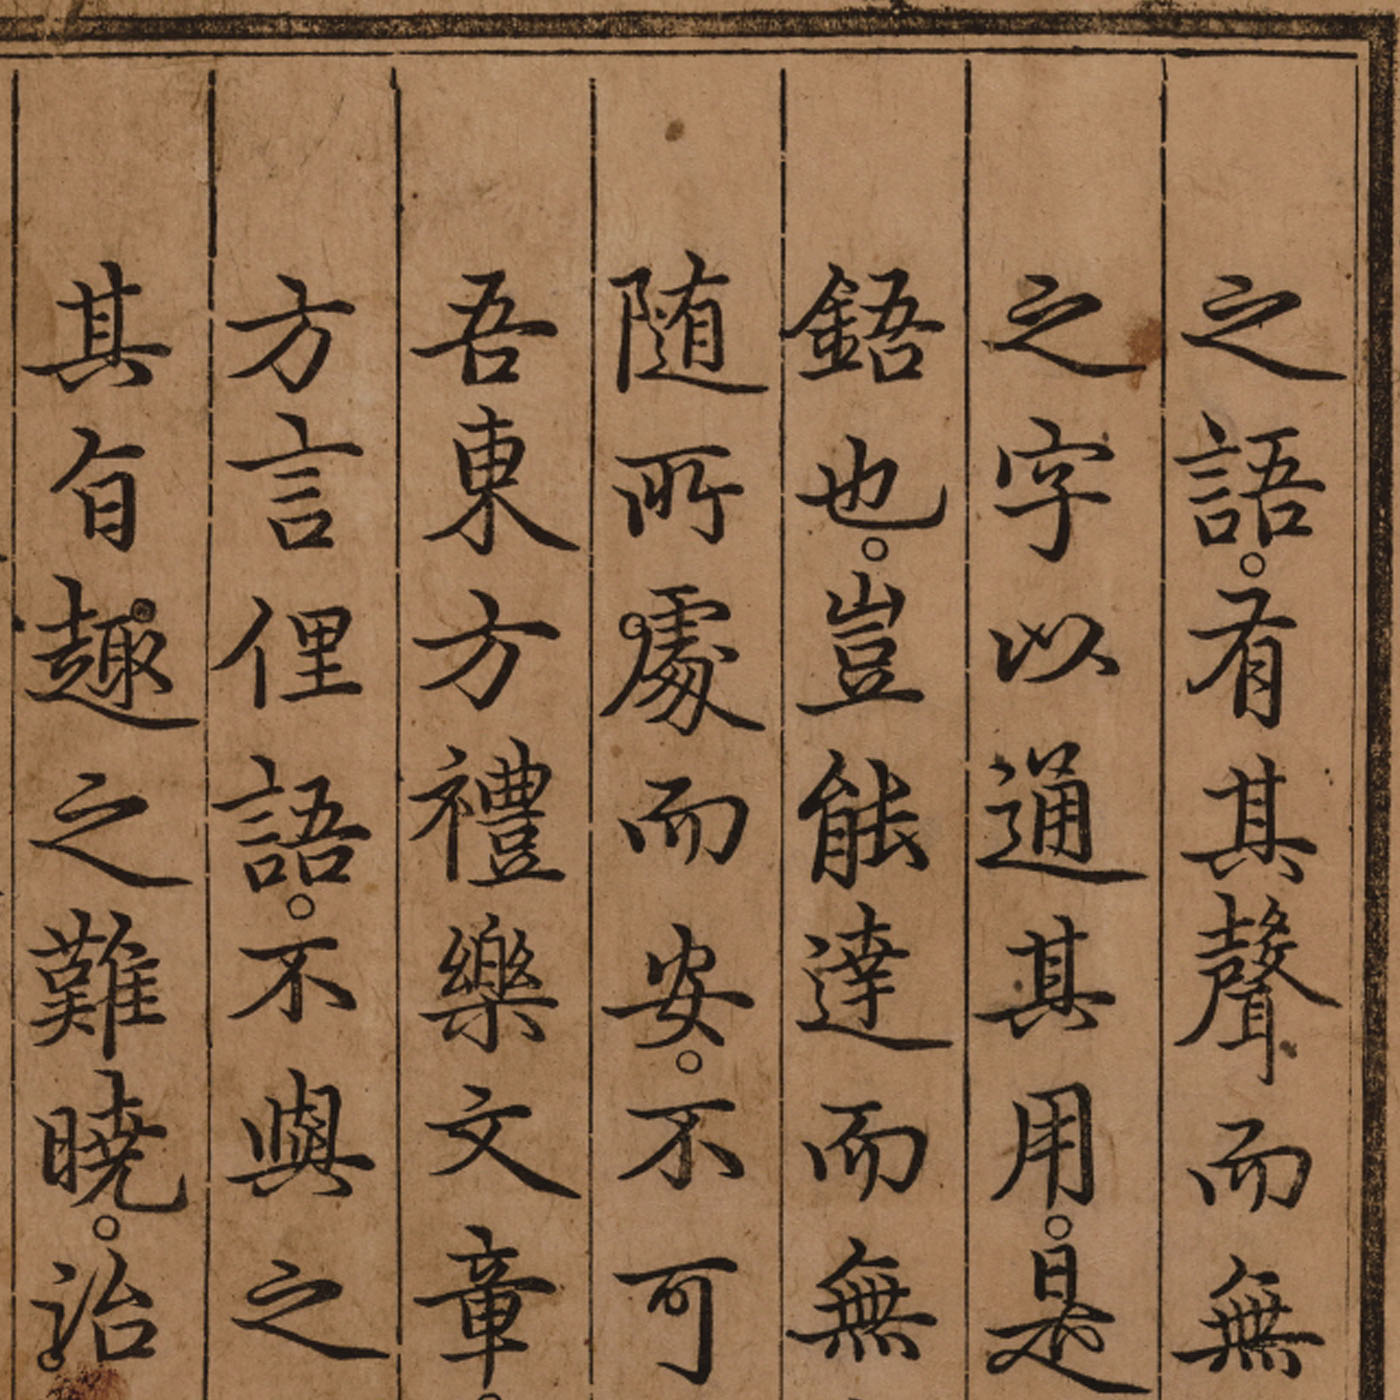 之語。有其聲而無
之字以通其用。是
鋙也。豈能達而無
随所處而安。不可
吾東方禮樂文章。
方言俚語。不與之
其旨趣之難曉。治